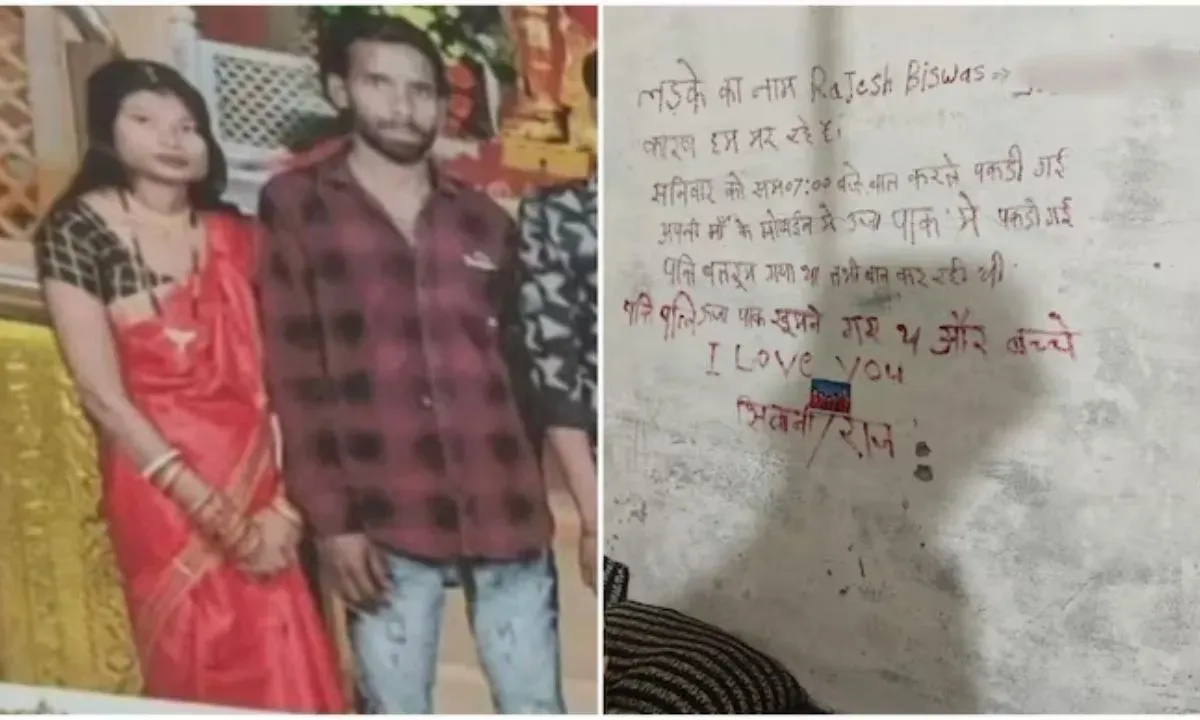 लड़के का नाम RaJesh Biswas ⇒
कारण हम मर रहे है।
सनिवार को सम 07:00 बजे बात करते पकडी गई
अपनी माँ के मोबाईल में उर्जा पाक में पकडी गई
पति बातरूम गया था तभी बात कर रही थी
पति पत्नि उर्जा पाक घुमने गए थे और बच्चे
I Love You
राज